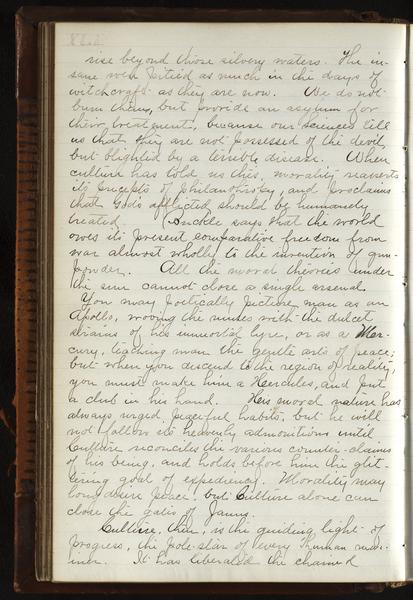 rise beyond those silvery waters. The in-
sane were pitied as much in the days of
witchcraft as they are now. We do not
burn them, but provide an asylum for
their treatment, because our sciences tell
us that they are not possessed of the devil,
but blighted by a terrible disease. When
culture has told us this, morality reasserts
its precepts of philanthropy, and proclaims
that God's afflicted should be humanely
treated. Buckle says that the world
owes its present comparative freedom from
war almost wholly to the invention of gun-
powder. All the moral theories under
the sun cannot close a single arsenal.
You may poetically picture man as an
Apollo, wooing the muses with the dulcet
strains of his immortal lyre, or as a Mer-
cury, teaching man the gentle arts of peace;
but when you descend to the region of reality,
you must make him a Hercules, and put
a club in his hand. His moral nature has
always urged peaceful habits, but he will
not follow its heavenly admonitions until
Culture reconciles the various counter-claims
of his being, and holds before him the glit-
tering goal of expediency. Morality may
long desire peace, but Culture alone can
close the gates of Janus.
Culture, then, is the guiding light of
progress, the pole-star of every human
It has liberated the chained